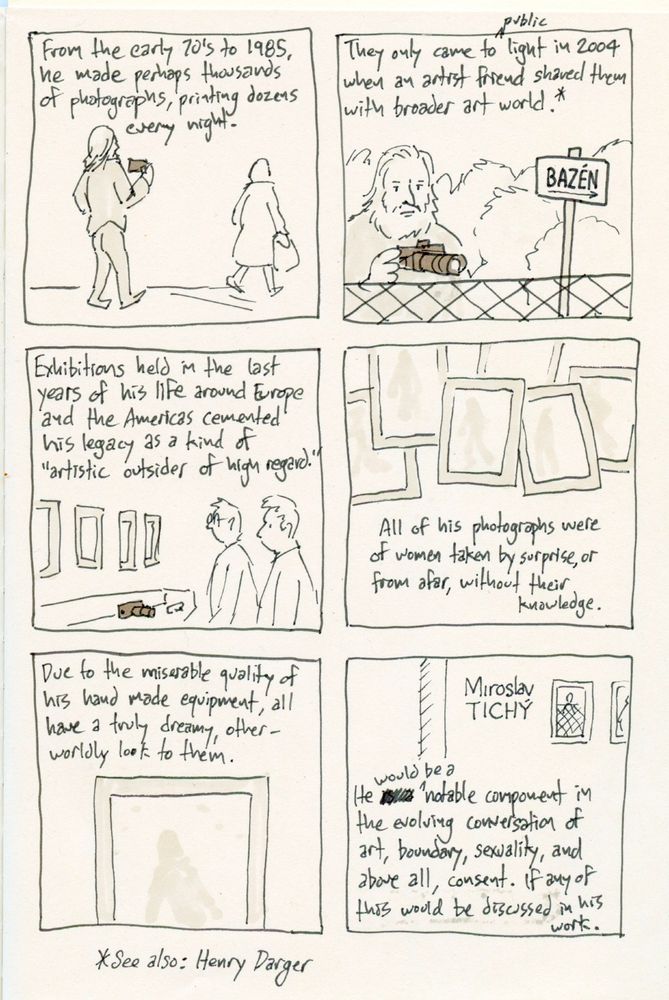 From the early 70's to 1985,
he made perhaps thousands
of photographs, printing dozens
every night.
public
They only came to light in 2004
when an artist friend shared them
with broader art world.*
BAZÉN
Exhibitions held in the last
years of his life around Europe
and the Americas cemented
his legacy as a kind of
"artistic outsider of high regard."
All of his photographs were
of women taken by surprise, or
from afar, without their
knowledge.
Due to the miserable quality of
his hand made equipment, all
have a truly dreamy, other-
worldly look to them.
Miroslav
TICHÝ
would be a
He notable component in
the evolving conversation of
art, boundary, sexuality, and
above all, consent. If any of
this would be discussed in his
work.
*See also: Henry Darger